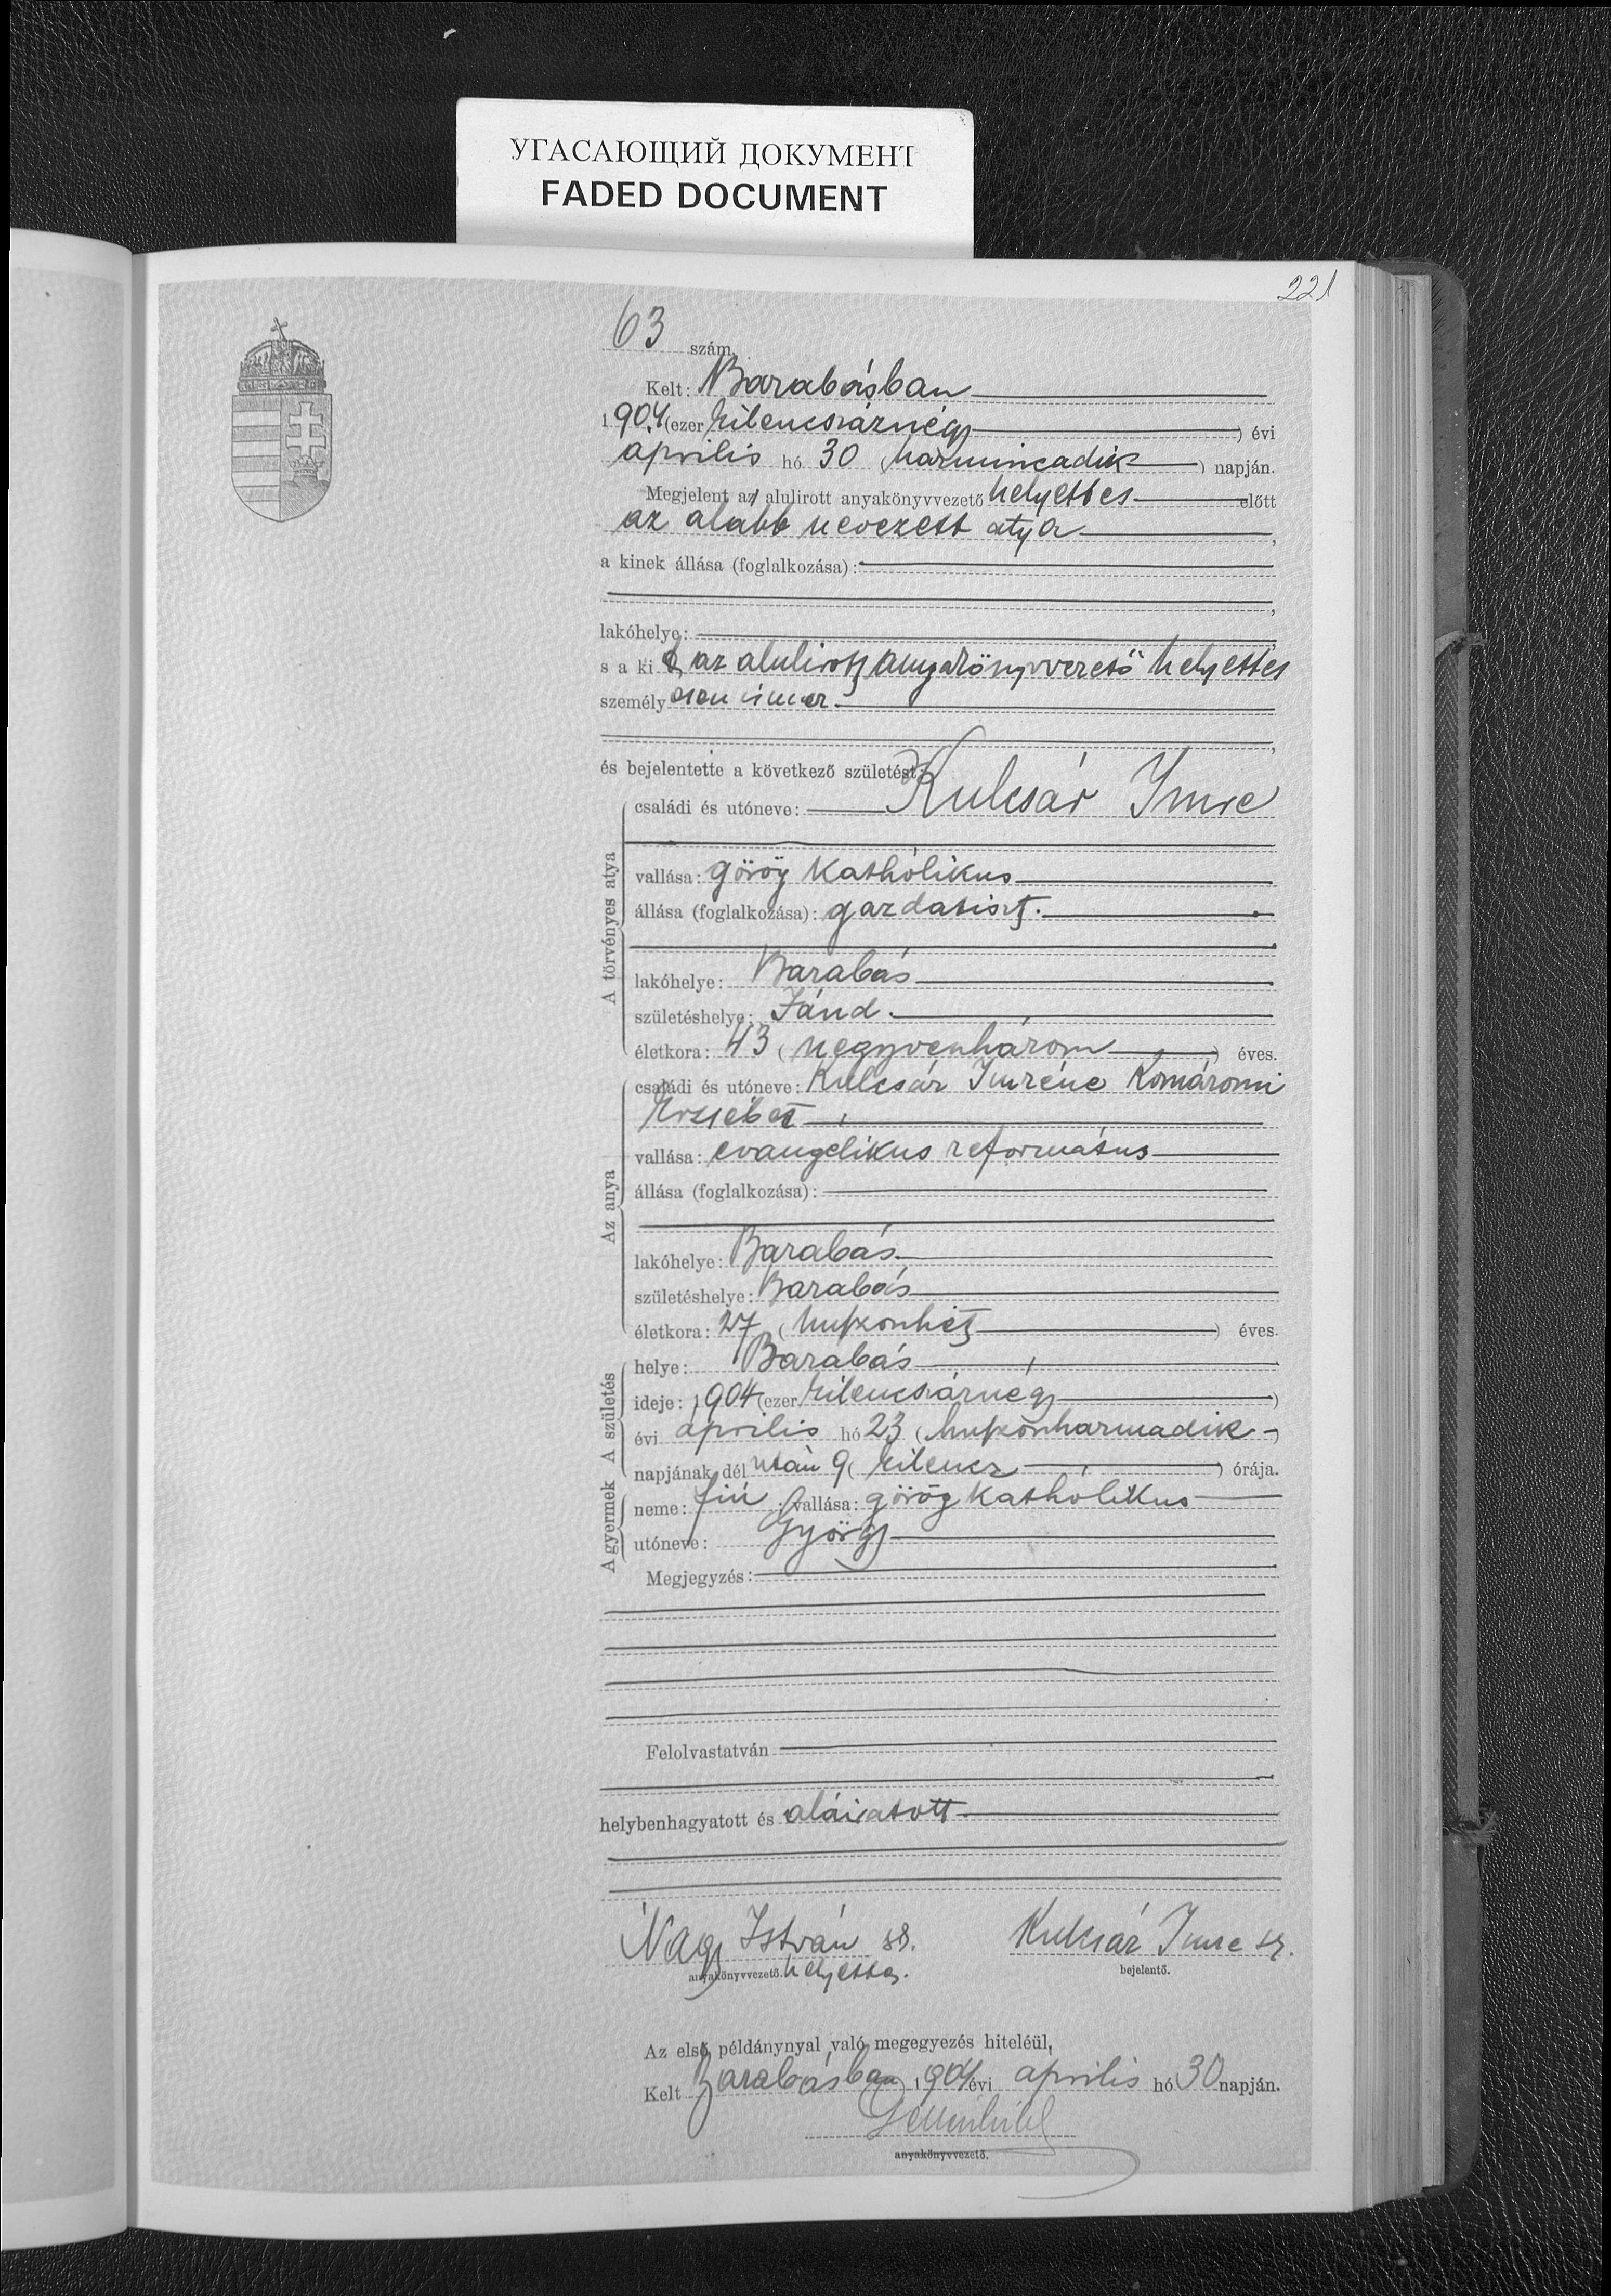 УГАСАЮЩИЙ ДОКУМЕНТ
FADED DOCUMENT
221
63 szám.
Kelt: Barabásban
1904 (ezer kilencszáznégy) évi
április hó 30 (harmincadik) napján.
Megjelent az alulirott anyakönyvvezető helyettes előtt
az alább nevezett atya,
a kinek állása (foglalkozása):
lakóhelye:
s a kit az alulirott anyakönyvvezető helyettes
személyesen ismer
és bejelentette a következő születést:
A törvényes atya
családi és utóneve: Kulcsár Imre
vallása: görög katholikus
állása (foglalkozása): gazdatiszt.
lakóhelye: Barabás
születéshelye: Jánd.
életkora: 43 (negyvenhárom) éves.
Az anya
családi és utóneve: Kulcsár Imréne Komáromi
Erzsébet
vallása: evangelikus református
állása (foglalkozása):
lakóhelye: Barabás
születéshelye: Barabás
életkora: 27 (huszonhét) éves.
A születés
helye: Barabás
ideje: 1904 (ezer kilencszáznégy)
évi április hó 23 (huszonharmadik)
napjának dél után 9 (kilencz) órája.
A gyermek
neme: fiú; vallása: görög katholikus
utóneve: György
Megjegyzés:
Felolvastatván
helybenhagyatott és aláiratott
Nagy István sk. Kulcsár Imre sk.
anyakönyvvezető. helyettes. bejelentő.
Az első példánynyal való megegyezés hiteléül,
Kelt Barabásban 1904 évi április hó 30 napján.
anyakönyvvezető.